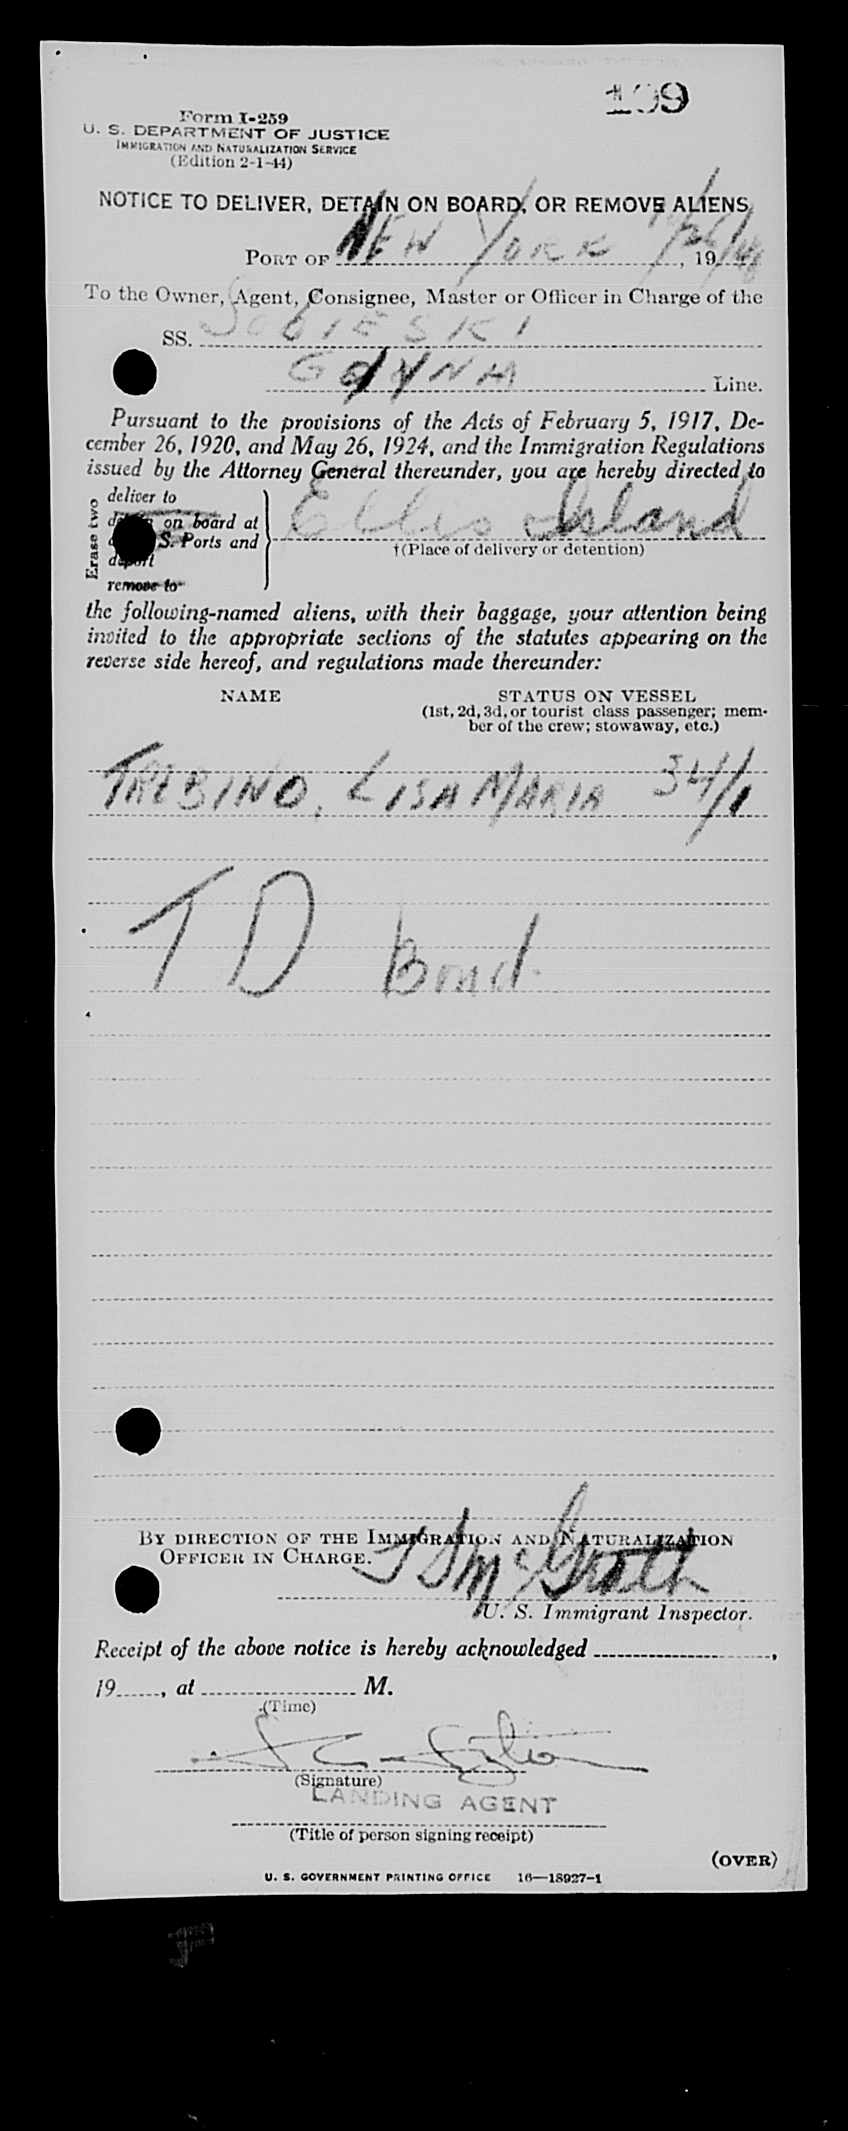 199
Form I-259
U. S. DEPARTMENT OF JUSTICE
IMMIGRATION AND NATURALIZATION SERVICE
(Edition 2-1-44)
NOTICE TO DELIVER, DETAIN ON BOARD, OR REMOVE ALIENS
PORT OF NEW YORK, 19
To the Owner, Agent, Consignee, Master or Officer in Charge of the
SS. SOBIESKI
GDYNIA Line.
Pursuant to the provisions of the Acts of February 5, 1917, De-
cember 26, 1920, and May 26, 1924, and the Immigration Regulations
issued by the Attorney General thereunder, you are hereby directed to
Erase two
deliver to
on board at
S. Ports and
deport
remove to
Ellis Island
†(Place of delivery or detention)
the following-named aliens, with their baggage, your attention being
invited to the appropriate sections of the statutes appearing on the
reverse side hereof, and regulations made thereunder:
NAME STATUS ON VESSEL
(1st, 2d, 3d, or tourist class passenger; mem-
ber of the crew; stowaway, etc.)
TREBINO, LISA MARIA 34/1
TD Bond.
BY DIRECTION OF THE IMMIGRATION AND NATURALIZATION
OFFICER IN CHARGE.
McGrath
U. S. Immigrant Inspector.
Receipt of the above notice is hereby acknowledged ,
19 , at M.
(Time)
(Signature)
LANDING AGENT
(Title of person signing receipt)
(OVER)
U. S. GOVERNMENT PRINTING OFFICE 16—18927-1